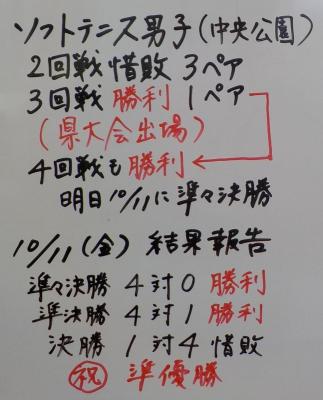 ソフトテニス男子(中央公園)
2回戦 惜敗 3ペア
3回戦 勝利 1ペア
(県大会出場)
4回戦も勝利
明日10/11に準々決勝
10/11(金) 結果報告
準々決勝 4対0 勝利
準決勝 4対1 勝利
決勝 1対4 惜敗
祝 準優勝